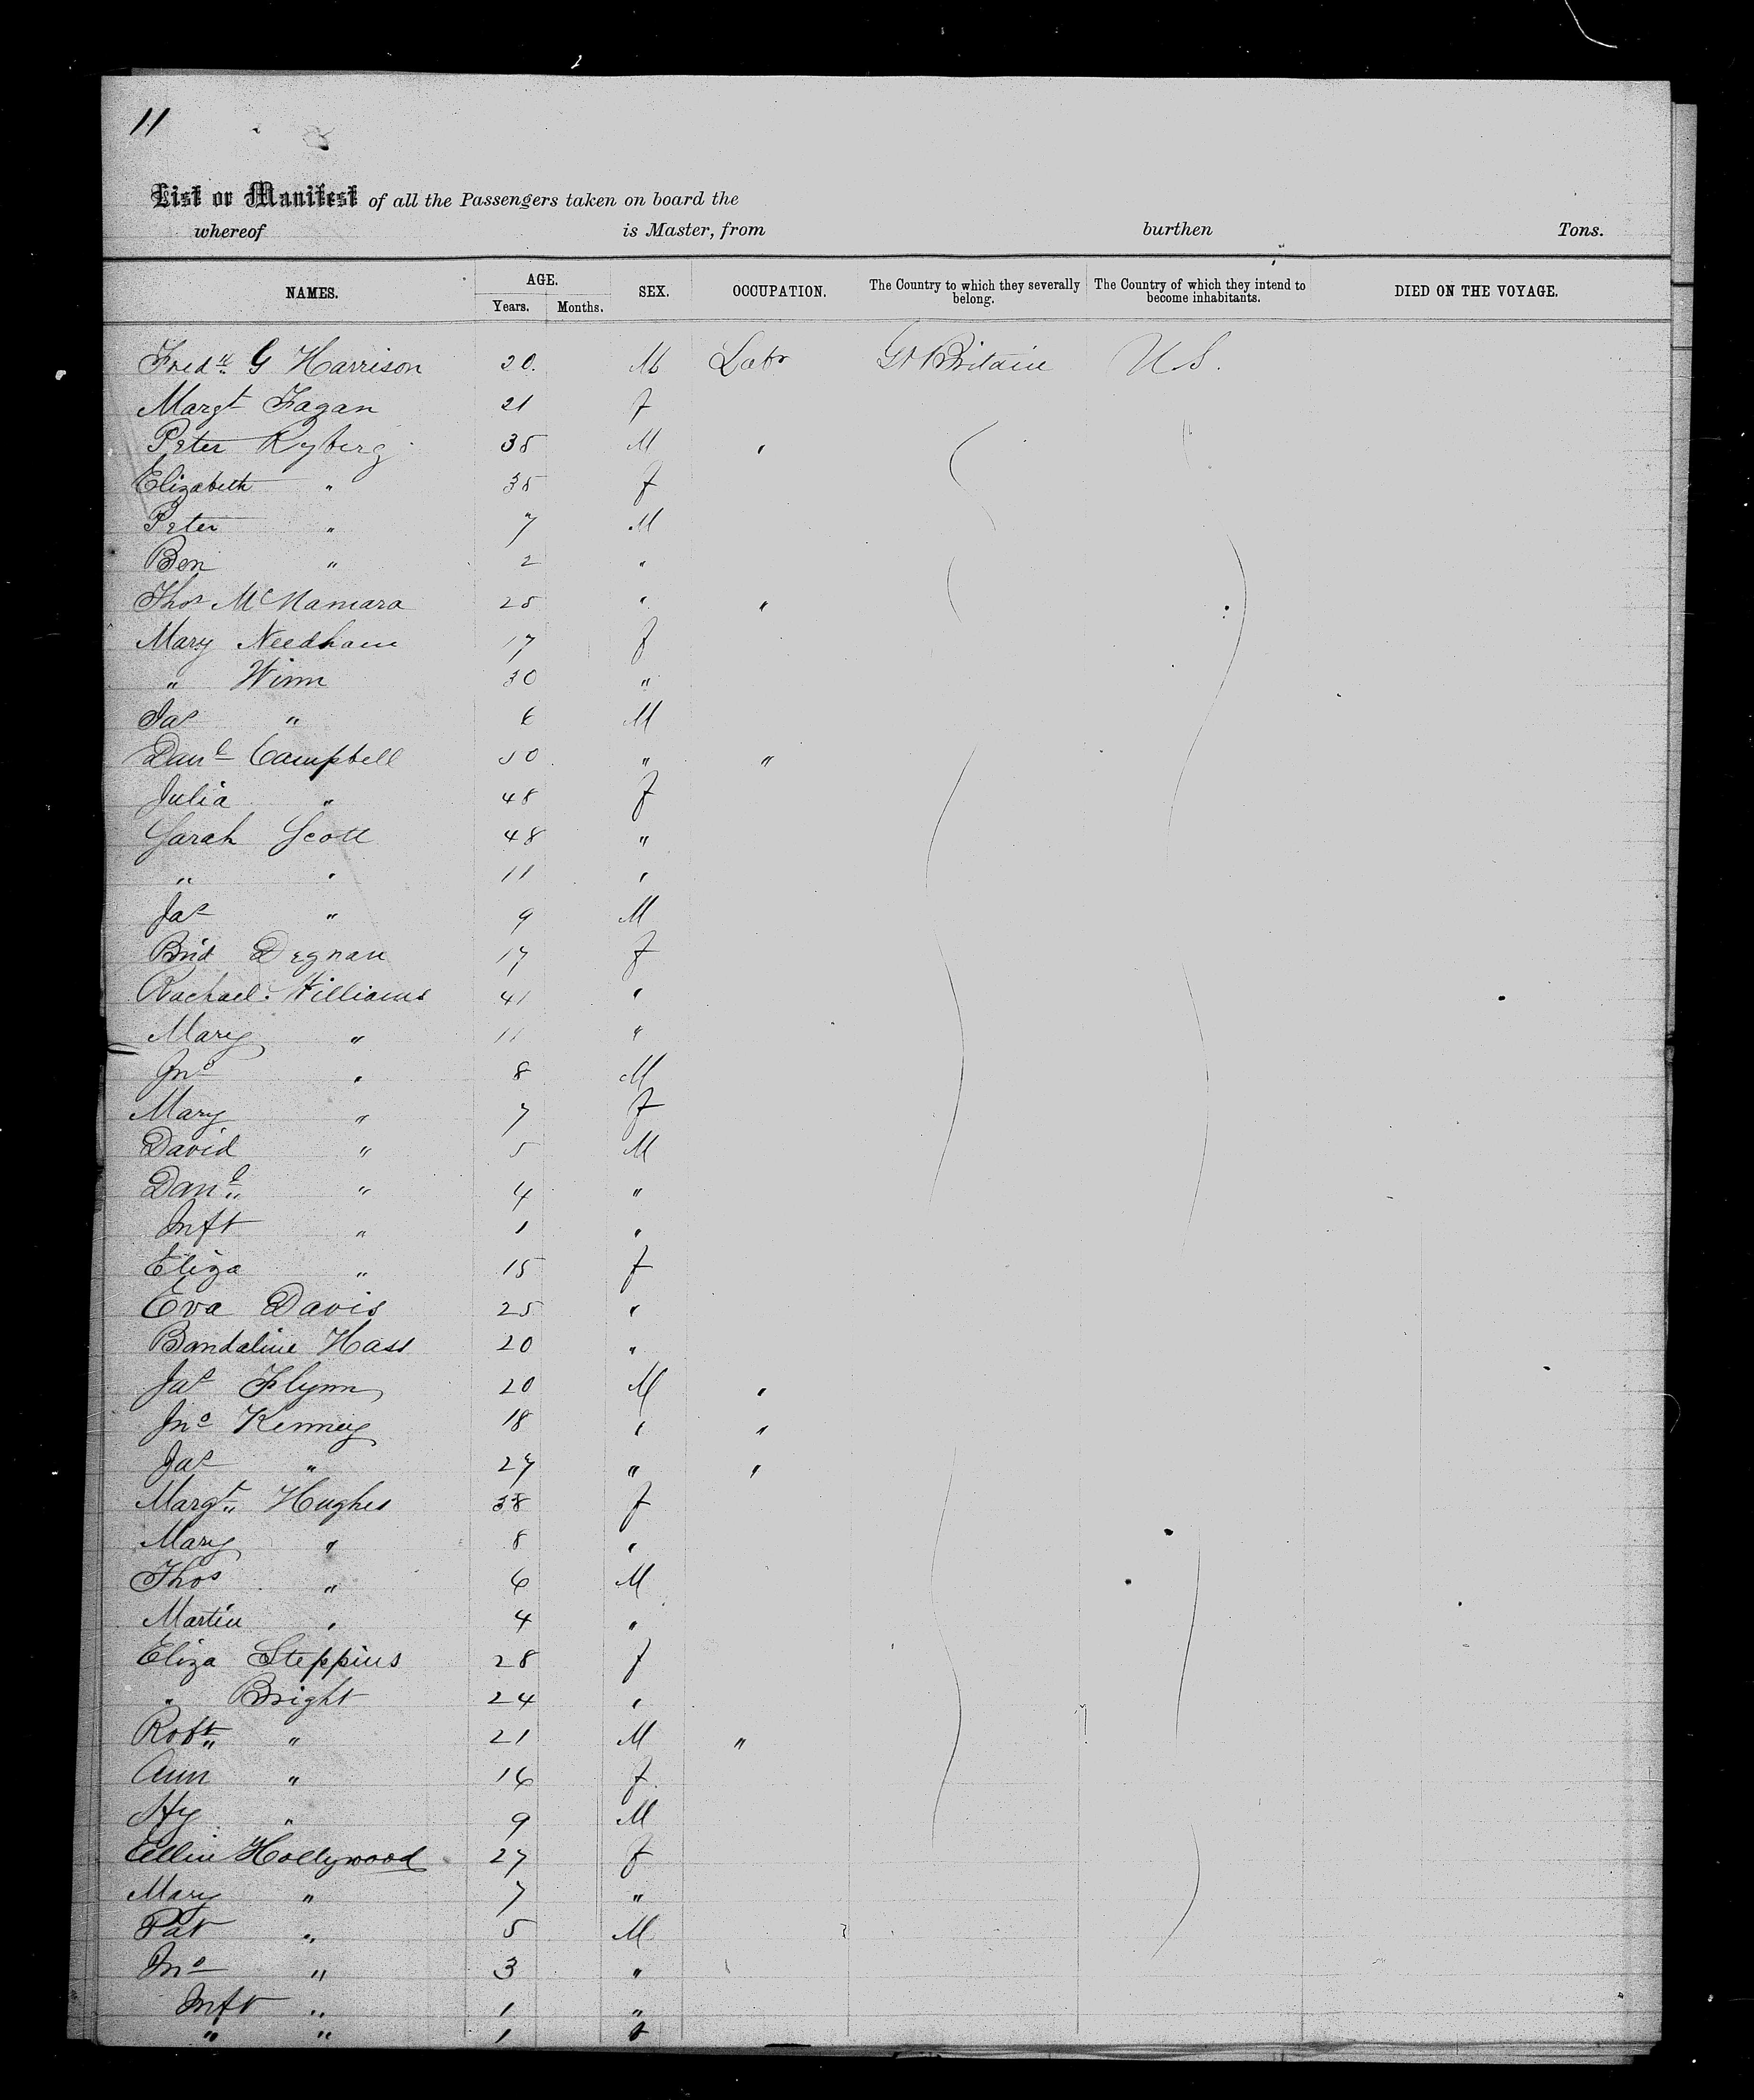 11
List or Manifest of all the Passengers taken on board the
whereof is Master, from burthen Tons.
NAMES. AGE. Years. Months. SEX. OCCUPATION. The Country to which they severally belong. The Country of which they intend to become inhabitants. DIED ON THE VOYAGE.
Fredk G Harrison 20. M Labr Gt Britain U S.
Margt Fagan 21 f
Peter Ryberg 35 M "
Elizabeth " 35 f
Peter " 7 M
Ben " 2 "
Thos McNamara 25 " "
Mary Needham 17 f
" Winn 30 "
Jas " 6 M
Danl Campbell 50 " "
Julia " 48 f
Sarah Scott 48 "
" " 11 "
Jas " 9 M
Brid Degnan 17 f
Rachael Williams 41 "
Mary " 11 "
Jno " 8 M
Mary " 7 f
David " 5 M
Danl " 4 "
Inft " 1 "
Eliza " 15 f
Eva Davis 25 "
Bandaline Hass 20 "
Jas Flynn 20 M "
Jno Kenney 18 " "
Jas " 27 " "
Margt Hughes 38 f
Mary " 8 "
Thos " 6 M
Martin " 4 "
Eliza Steppins 28 f
" Bright 24 "
Robt " 21 M "
Ann " 16 f
Hy " 9 M
Ellin Hollywood 27 f
Mary " 7 "
Pat " 5 M
Jno " 3 "
Inft " 1 "
" " 1 f